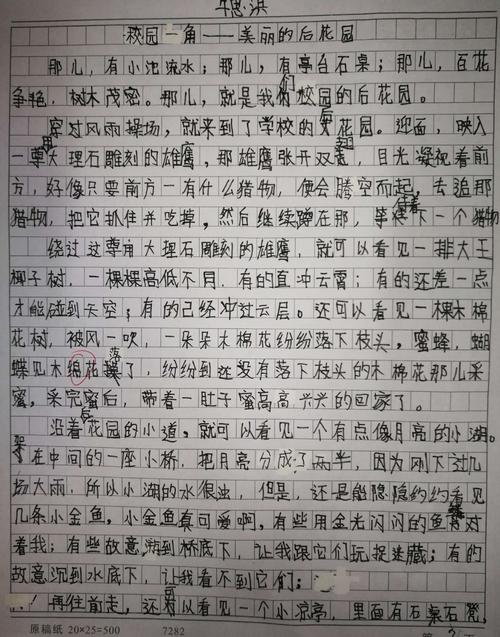 校园一角——美丽的后花园
那儿，有小池流水；那儿，有亭台石桌；那儿，百花
争艳，树木茂密。那儿，就是我们校园的后花园。
穿过风雨操场，就来到了学校的后花园。迎面，映入
一尊用大理石雕刻的雄鹰，那雄鹰张开双翅，目光凝视着前
方，好像只要前方一有什么猎物，便会腾空而起，去追那
猎物，把它抓住并吃掉。然后继续蹲在那，等待着下一个猎物
绕过这尊用大理石雕刻的雄鹰，就可以看见一排大王
椰子树，一棵棵高低不同，有的直冲云霄；有的还差一点
才能碰到天空；有的已经冲过云层。还可以看见一棵木棉
花树，被风一吹，一朵朵木棉花纷纷落下枝头。蜜蜂，蝴
蝶见木绵花落了，纷纷到还没有落下枝头的木棉花那儿采
蜜，采完蜜后，带着一肚子蜜高高兴兴的回家了。
沿着后花园的小道，就可以看见一个有点像月亮的小湖。
在中间的一座小桥，把月亮分成了两半，因为刚下过几
场大雨，所以小湖的水很浊，但是，还是能隐隐约约看见
几条小金鱼，小金鱼真可爱啊，有些用金光闪闪的鱼背对
着我；有些故意游到桥底下，让我跟它们玩捉迷藏；有的
故意沉到水底下，让我看不到它们；
再往前走，还可以看见一个小凉亭，里面有石桌石凳，
原稿纸 20×25=500 7282